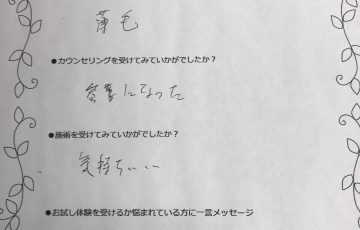 薄毛
●カウンセリングを受けてみていかがでしたか？
参考になった
●施術を受けてみていかがでしたか？
気持ちいい
●お試し体験を受けるか悩まれている方に一言メッセージ